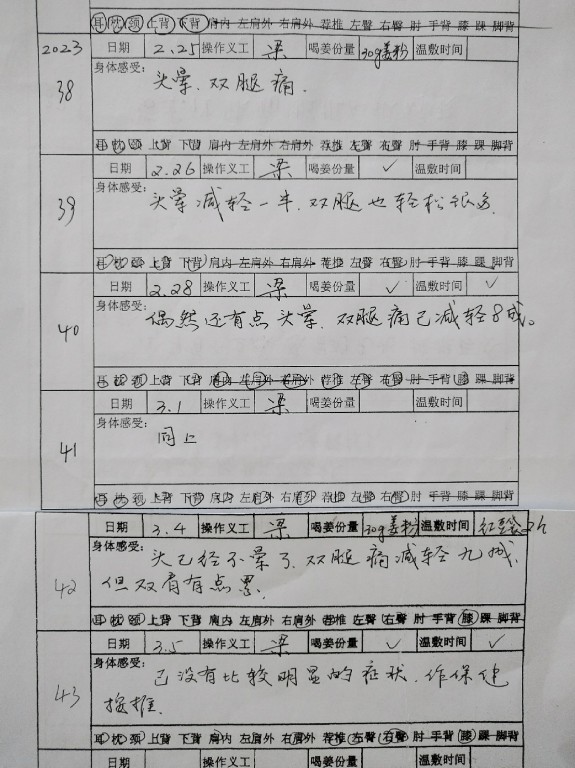 耳 枕 颈 上背 下背 肩内 左肩外 右肩外 荐推 左臀 右臀 肘 手背 膝 踝 脚背
2023 日期 2.25 操作义工 梁 喝姜份量 30g姜粉 温敷时间
38 身体感受:
头晕. 双腿痛.
耳 枕 颈 上背 下背 肩内 左肩外 右肩外 荐推 左臀 右臀 肘 手背 膝 踝 脚背
日期 2.26 操作义工 梁 喝姜份量 ✓ 温敷时间
39 身体感受:
头晕减轻一半. 双腿也轻松很多
耳 枕 颈 上背 下背 肩内 左肩外 右肩外 荐推 左臀 右臀 肘 手背 膝 踝 脚背
日期 2.28 操作义工 梁 喝姜份量 ✓ 温敷时间 ✓
40 身体感受:
偶然还有点头晕. 双腿痛已减轻8成。
耳 枕 颈 上背 下背 肩内 左肩外 右肩外 荐推 左臀 右臀 肘 手背 膝 踝 脚背
日期 3.1 操作义工 梁 喝姜份量 温敷时间
41 身体感受:
同上
耳 枕 颈 上背 下背 肩内 左肩外 右肩外 荐推 左臀 右臀 肘 手背 膝 踝 脚背
日期 3.4 操作义工 梁 喝姜份量 30g姜粉 温敷时间 红豆袋2h
42 身体感受:
头已经不晕了. 双腿痛减轻九成.
但双肩有点累.
耳 枕 颈 上背 下背 肩内 左肩外 右肩外 荐推 左臀 右臀 肘 手背 膝 踝 脚背
日期 3.5 操作义工 梁 喝姜份量 ✓ 温敷时间 ✓
43 身体感受:
已没有比较明显的症状. 作保健
按推.
耳 枕 颈 上背 下背 肩内 左肩外 右肩外 荐推 左臀 右臀 肘 手背 膝 踝 脚背
日期 操作义工 喝姜份量 温敷时间